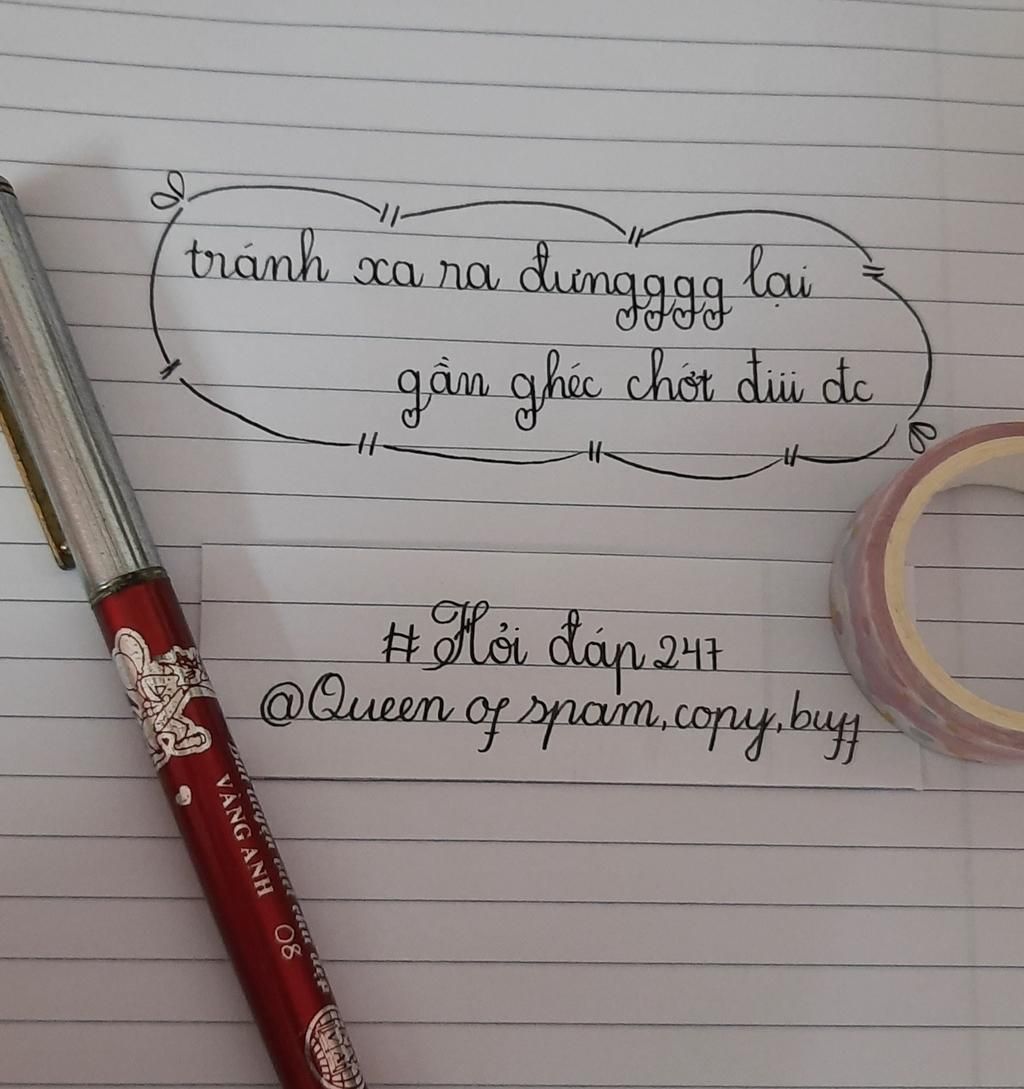 tránh xa ra đưngggg lại
gần ghéc chớt điii đc
#Hỏi đáp 247
@Queen of spam, copy, buff
VÀNG ANH 08